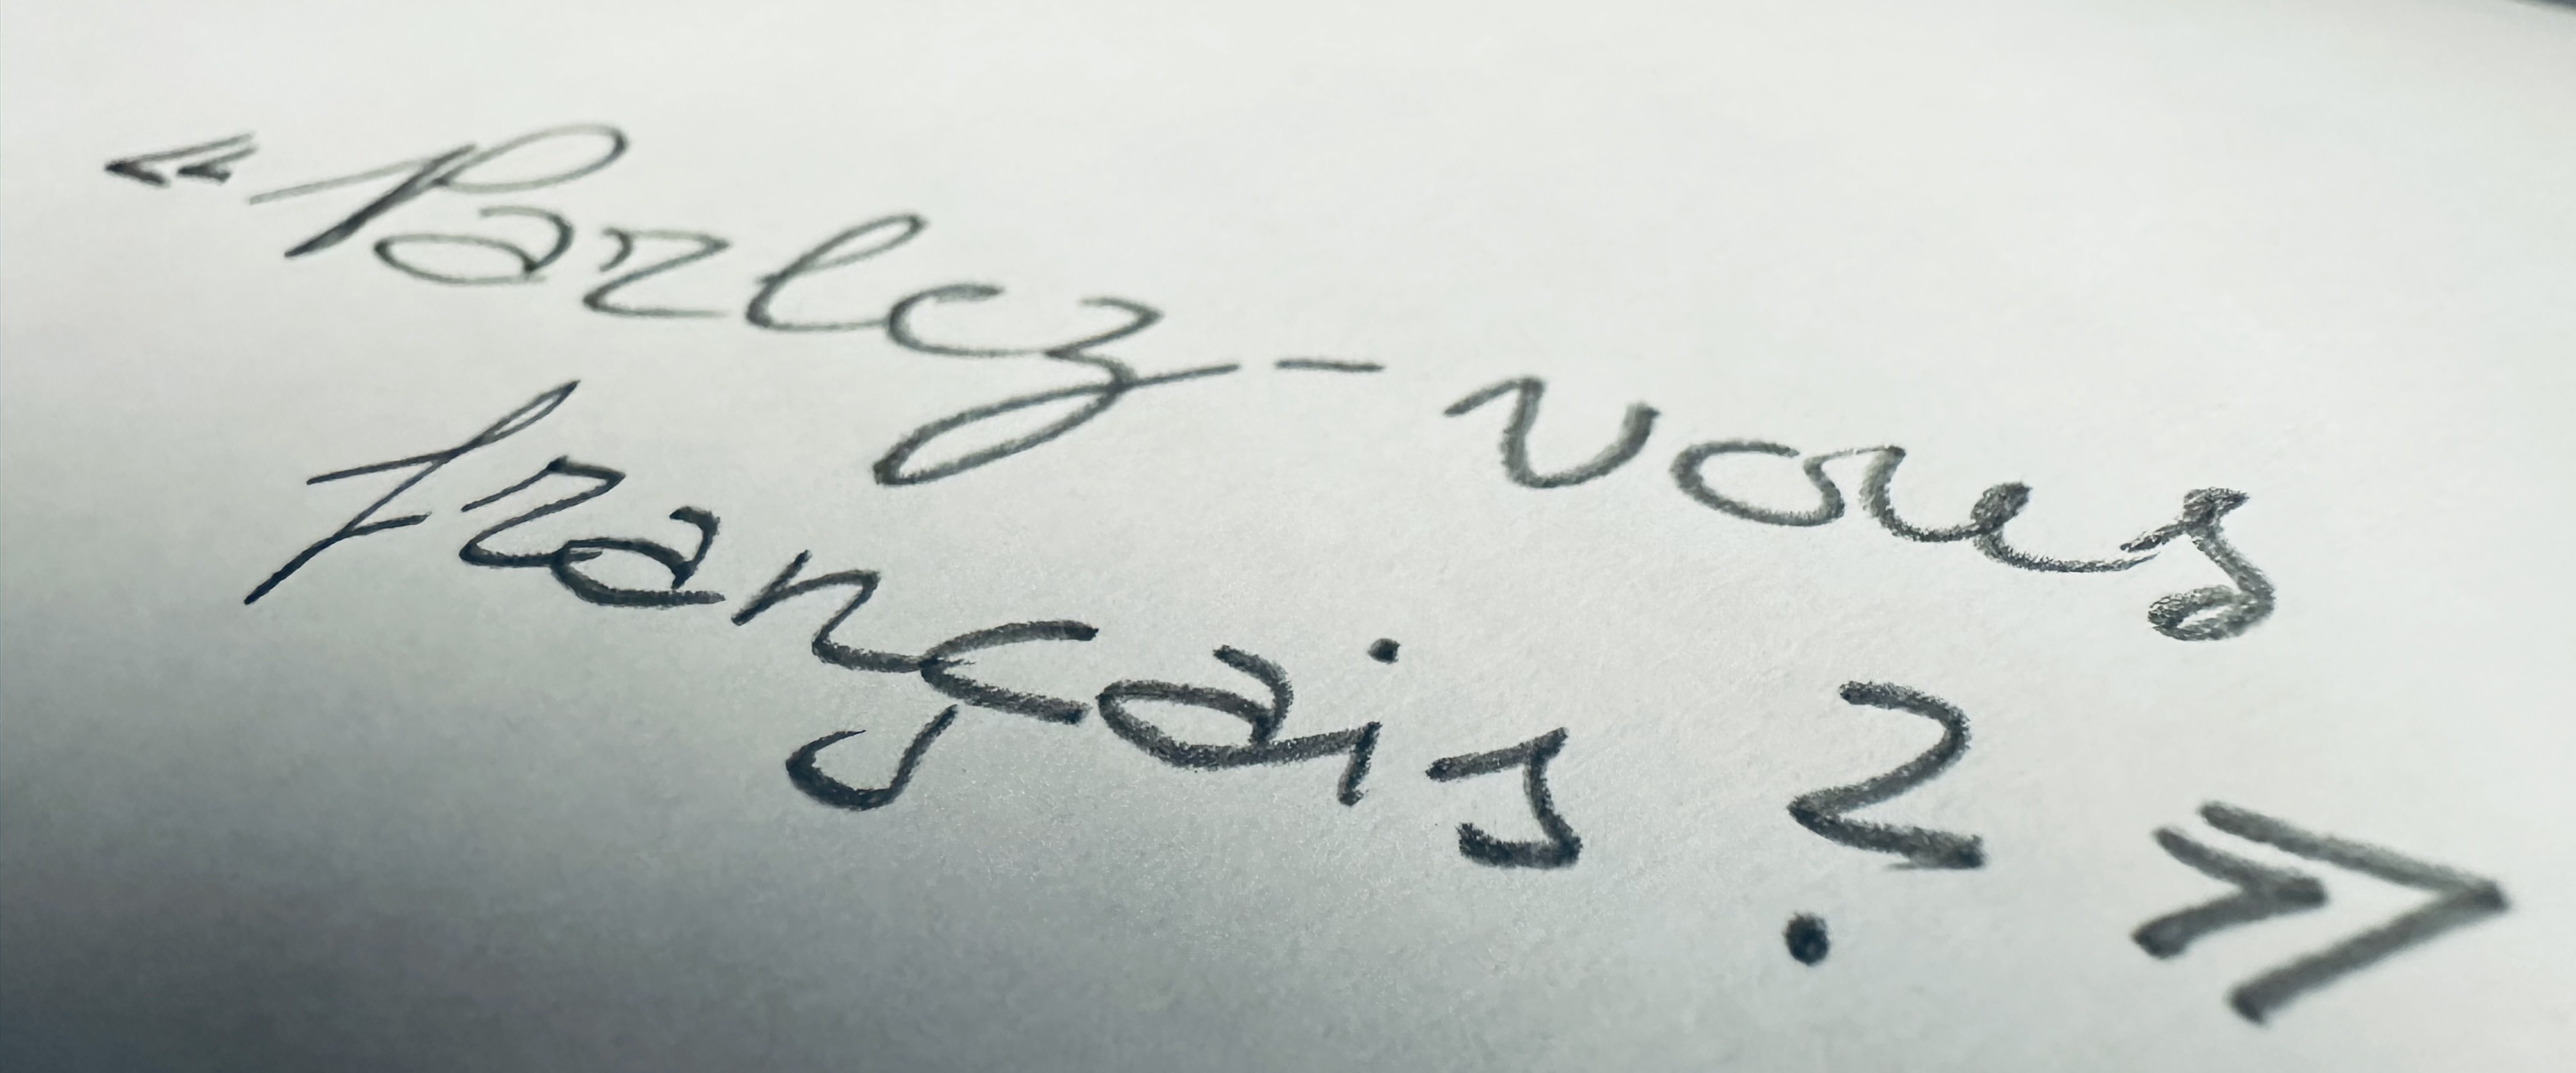 « Parlez-vous
français ? »